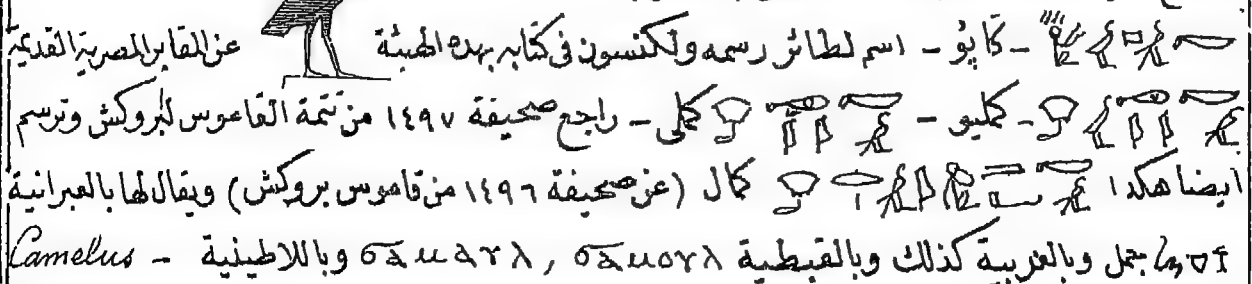 - كاپو - اسم لطائر رسمه ولكنسون فى كتابه بهذه الهيئة عن المقابر المصرية القديمة
- كمليو - كملى - راجع صحيفة ١٤٩٧ من تتمة القاموس لبروكش وترسم
ايضا هكذا كمال (عن صحيفة ١٤٩٦ من قاموس بروكش) ويقال لها بالعبرانية
جمل وبالعربية كذلك وبالقبطية ϭⲁⲙⲟⲩⲗ , ϭⲁⲙⲁⲩⲗ وباللاطينية - Camelus